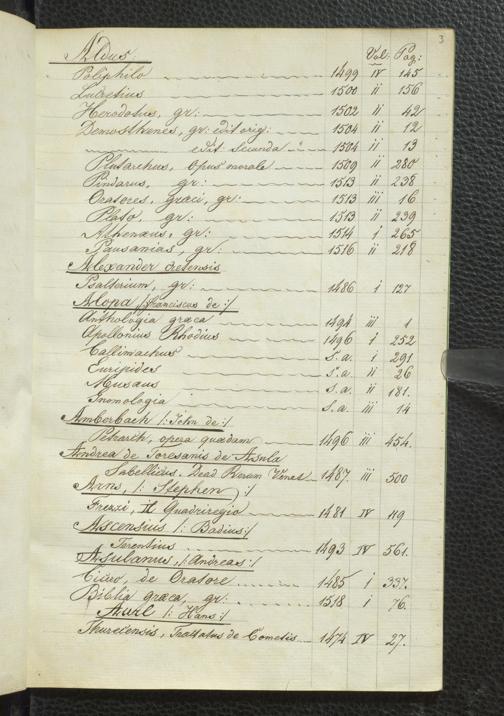 3
Vol: Pag:
Aldus
Poliphilo 1499 IV 145
Lucretius 1500 ii 156
Herodotus, gr: 1502 ii 42
Demosthenes, gr: edit orig: 1504 ii 12
edit secunda 1504 ii 13
Plutarchus, opus morale 1509 ii 280
Pindarus, gr: 1513 ii 238
Oratores, graeci, gr: 1513 iii 16
Plato, gr: 1513 ii 239
Athenaeus, gr: 1514 i 265
Pausanias, gr: 1516 ii 218
Alexander Cretensis
Psalterium, gr: 1486 i 127
Alopa, /: Franciscus de :/
Anthologia graeca 1494 iii 1
Apollonius Rhodius 1496 i 252
Callimachus s.a. i 291
Euripides s.a. ii 26
Musaeus s.a. ii 181.
Gnomologia s.a. iii 14
Amberbach /: John de :/
Petrarch, opera quaedam 1496 iii 454.
Andrea de Toresanis de Asula
Sabellicus. Dead Rerum Venet 1487. iii 500
Arns, /: Stephen :/
Frezzi, il Quadriregio 1481 IV 119
Ascensius /: Badius :/
Terentius 1493 IV 561.
Asulanus, /: Andreas :/
Cicero, de Oratore 1485 i 337.
Biblia graeca, gr: 1518 i 76.
Aurl /: Hans :/
Thurecensis, Tractatus de Cometis 1474 IV 27.